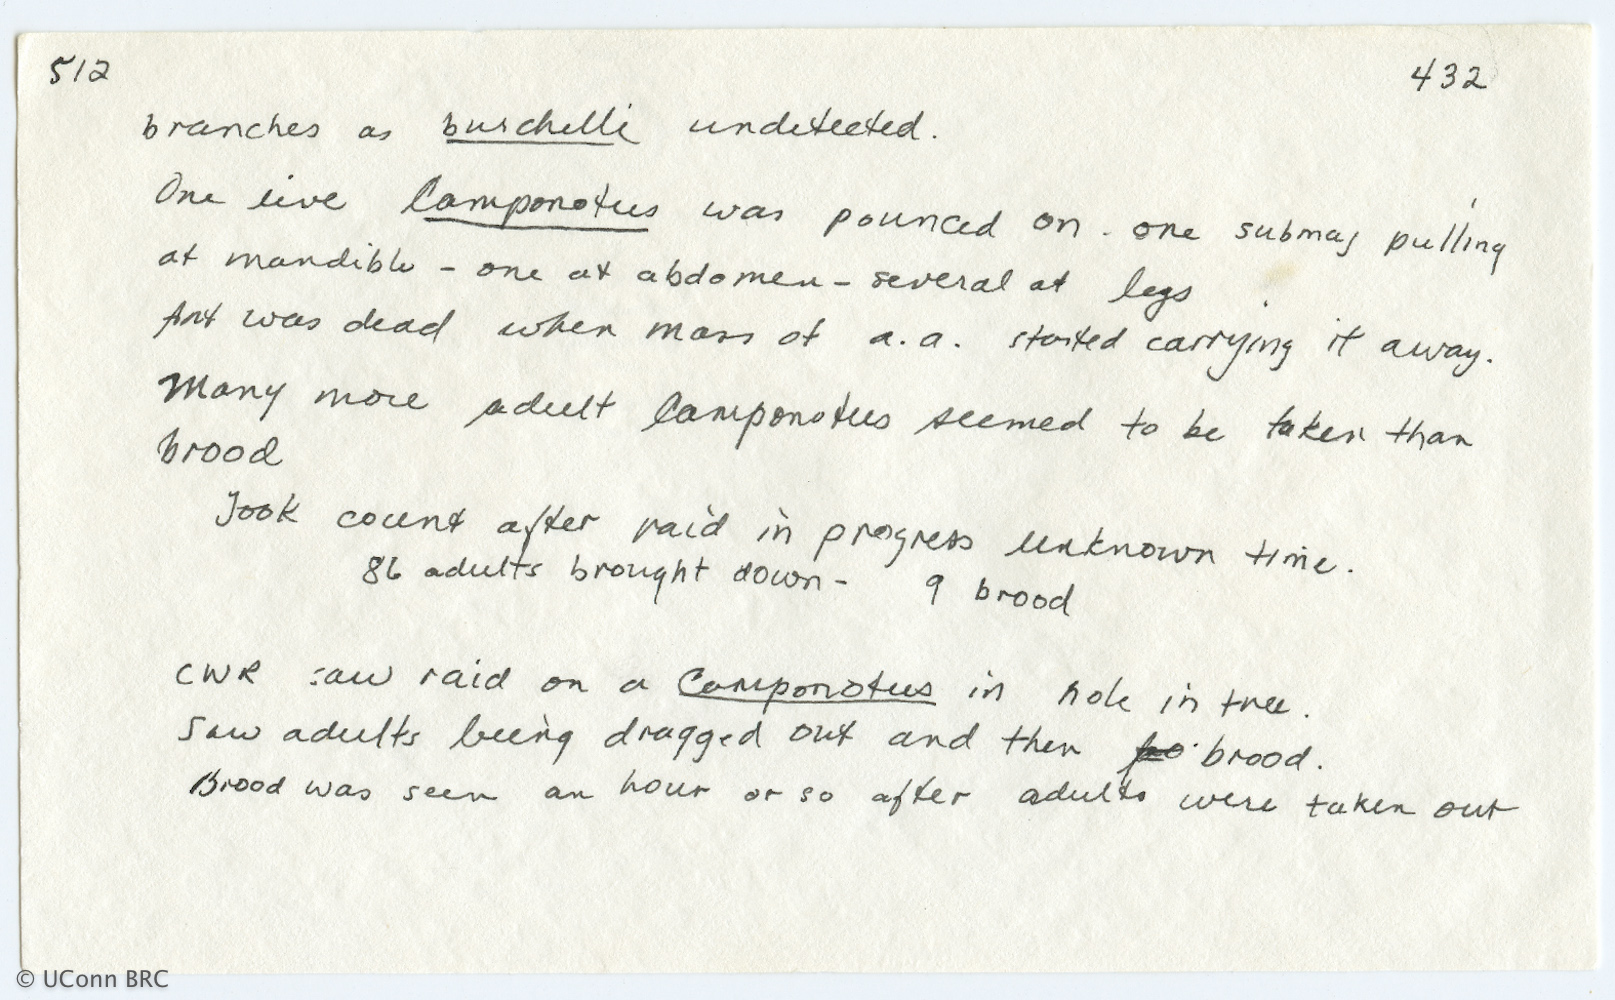 512 432
branches as burchelli undetected.
One live Camponotus was pounced on - one submaj pulling
at mandible - one at abdomen - several at legs.
Ant was dead when mass of a.a. started carrying it away.
Many more adult Camponotus seemed to be taken than
brood
Took count after raid in progress unknown time.
86 adults brought down - 9 brood
CWR saw raid on a Camponotus in hole in tree.
Saw adults being dragged out and then brood.
Brood was seen an hour or so after adults were taken out
© UConn BRC